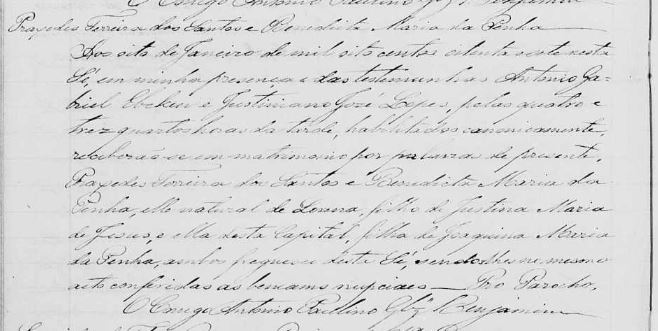 O Conego Antonio Paulino Glz Benjamin
Praxedes Ferreira dos Santos e Benedicta Maria da Penha
Aos oito de Janeiro de mil oito centos oitenta e sete nesta
Sé, em minha presença e das testemunhas Antonio Ga-
briel Ebeken e Justiniano Jose Lopes, pelas quatro e
trez quartos horas da tarde, habilitados canonicamente,
receberão-se em matrimonio por palavras de presente,
Praxedes Ferreira dos Santos e Benedicta Maria da
Penha, elle natural de Lorena, filho de Justina Maria
de Jesus, e ella desta Capital, filha de Joaquina Maria
da Penha, ambos freguezes desta Sé, sendo-lhes no mesmo
acto conferidas as bençams nupciaes — Pro Parocho,
O Conego Antonio Paullino Glz Benjamin